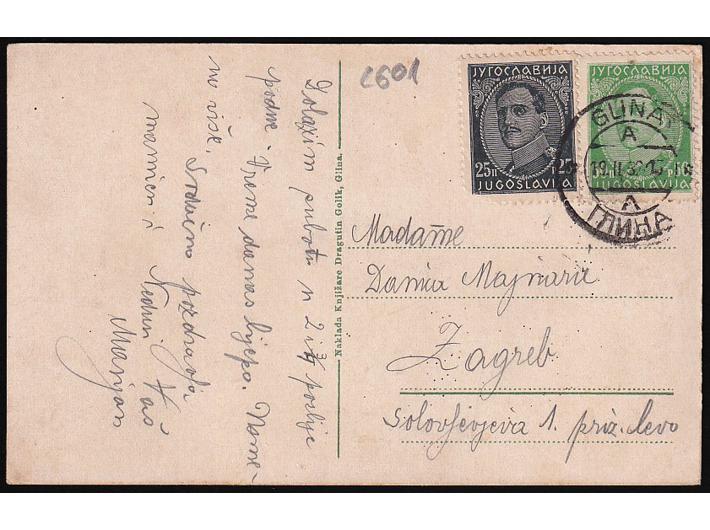 Dolazim subotu u 2 i 3/4 poslije
podne. Vreme danas ljepo. Nema-
mo više. Srdačno pozdravlja
mamicu i Vas
Marijan
Naklada Knjižare Dragutin Golik, Glina.
2601
ЈУГОСЛАВИЈА
25 П P. 25
JUGOSLAVIJA
ЈУГОСЛАВИЈА
JUGOSLAVIJA
GLINA
A
ГЛИНА
Madame
Danica Majnarić
Zagreb
Solovljevjeva 1. priz. levo